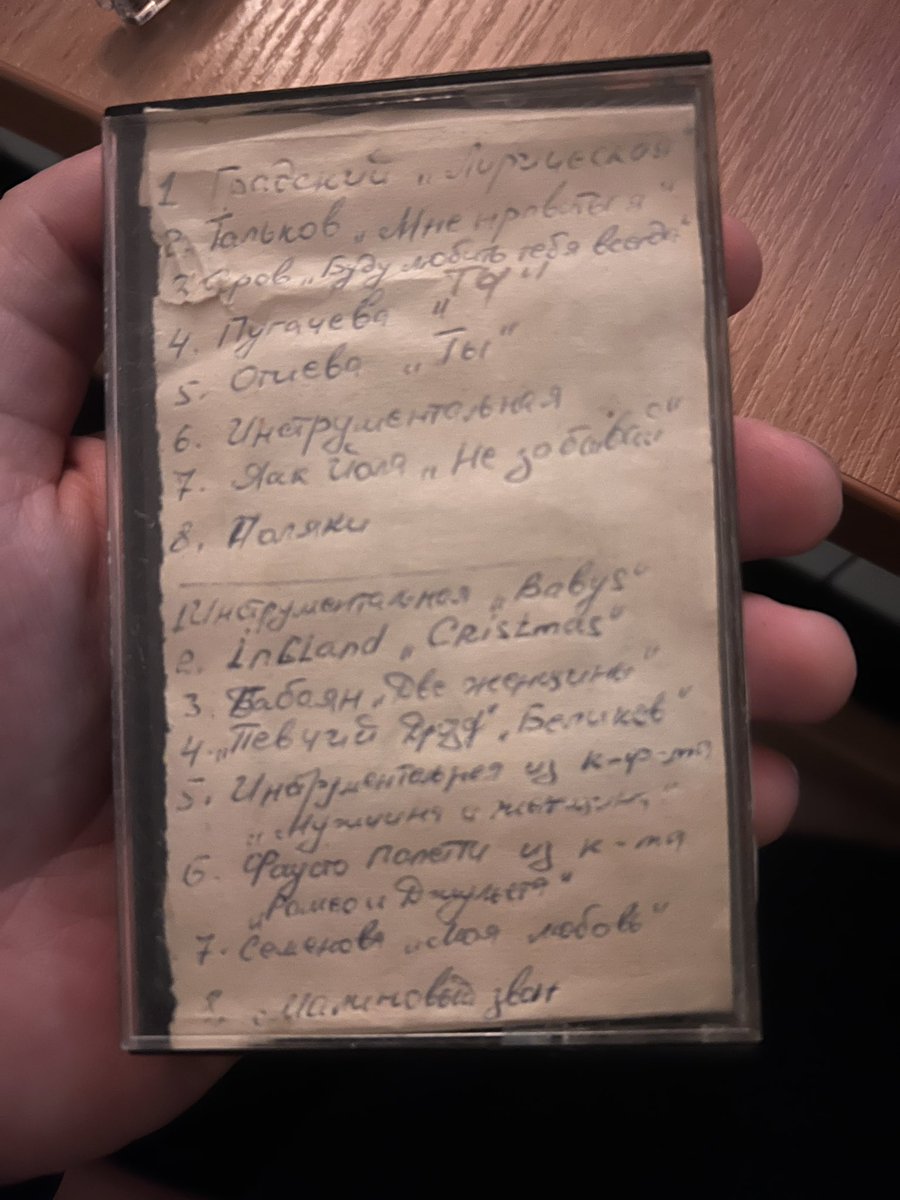 1 Градский „Лирическая
2. Тальков „Мне нравиться"
3 Серов „Буду любить тебя всегда"
4. Пугачева „Ты"
5. Отиева „Ты"
6. Инструментальная
7. Яак Йола „Не забывай"
8. Поляки
1 Инструментальная „Babys"
2. Ingland „Cristmas"
3. Бабаян „Две женщины"
4. „Певчий Дрозд" „Беликов"
5. Инструментальная из к-ф-ма
„Мужчина и женщина"
6. Фаусто Папетти из к-ма
„Ромео и Джульета"
7. Семенова „Моя любовь"
8. „Малиновый звон